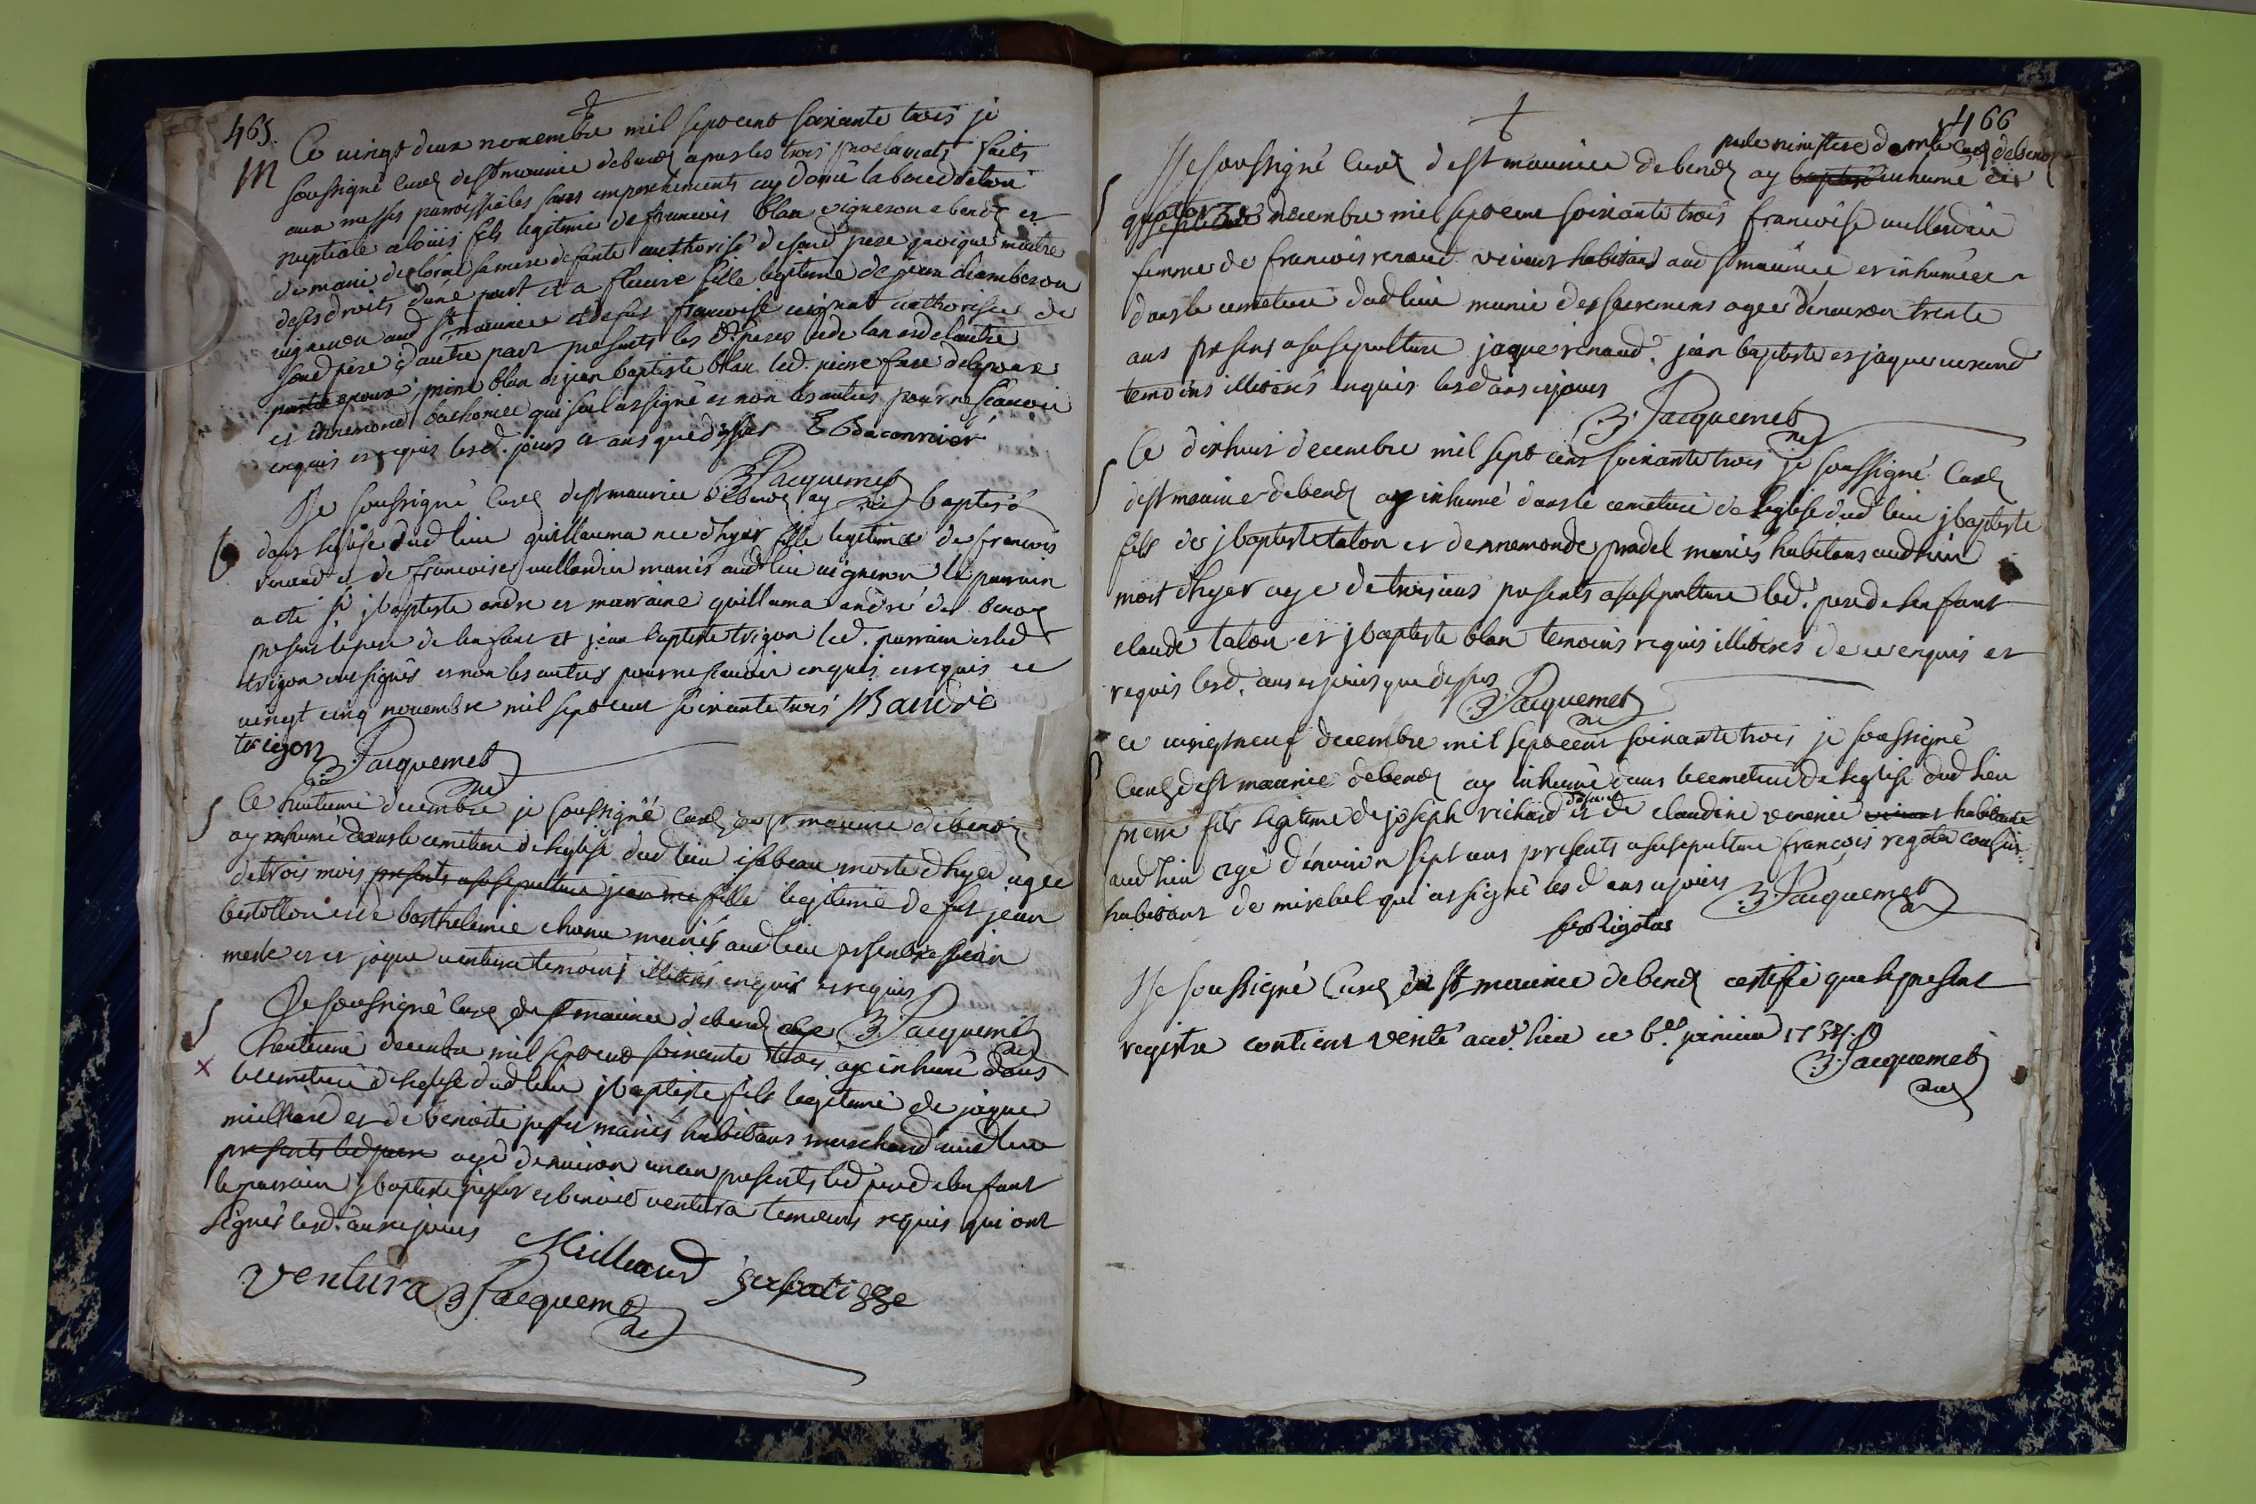 465.
Ce vingt deux novembre mil sept cent soixante trois je
M
soussigné Curé de st maurice de benoz apres les trois proclamats faits
aux messes paroissiales sans empechements ay donné la bened
nuptiale a loüis fils legitime de francois blan vigneron a et
de marie sa mere defunte authorisé de soud pere
de ses droits d'une part et a fleurie fille legitime de jean chamberon
vigneron aud st maurice et de françoise authorisée de
soud pere d'autre part presents les d. peres de lun et de lautre
pierre blan et jean baptiste blan led. pierre frere de lepoux
et ennemond qui seul a signé et non les autres pour ne scavoir
enquis et requis lesd. jours et ans que dessus
B Jacquemet
Je soussigné Curé de st maurice de benoz ay baptisé
b
dans leglise dud lieu guillauma née d'hyer fille legitime de francois
renaud et de francoise vullerdin mariés aud lieu vigneron le parrain
a été sr jbaptiste andre et marraine guillauma andré de
presents le pere de lenfant et jean baptiste trigon led. parrain et led
trigon ont signés et non les autres pour ne scavoir enquis et requis ce
vingt cinq novembre mil sept cent soixante trois JBandré
trigon B Jacquemet
S
Ce huitieme decembre je soussigné Curé de st maurice de benoz
ay inhumé dans le cemetiere de leglise dud lieu isabeau morte d'hyer agée
de trois mois presents a sa sepulture jean me fille legitime de jean
et de barthelemie mariés aud lieu presents
merle et jaque ventura temoins illiterés enquis et requis
B Jacquemet
S
Je soussigné Curé de st maurice de benoz
x
decembre mil sept cent soixante trois ay inhumé dans
le cemetiere de leglise dud lieu jbaptiste fils legitime de jaque
milliard et de benoite mariés habitans marchand aud lieu
presents led pere agé denviron un an presents led pere de lenfant
le parrain jbaptiste et benoit ventura temoins requis qui ont
signés lesd. ans et jours
Milliard
ventura B Jacquemet
466
par le ministere de mr le Curé de
S
Je soussigné Curé de st maurice de benoz ay baptisé inhumé
quatorze decembre mil sept cent soixante trois francoise vullerdin
femme de francois renaud habitans aud st maurice et inhumée
dans le cemetiere dud lieu munie des sacremens agée denviron trente
ans presens a sa sepulture jaque renaud. jean baptiste et jaque
temoins illiterés enquis lesd ans et jours
B. Jacquemet
S
Ce dixhuit decembre mil sept cent soixante trois je soussigné Curé
de st maurice de benoz ay inhumé dans le cemetiere de leglise dud lieu jbaptiste
fils de jbaptiste talon et dennemonde pradel mariés habitans aud lieu
mort d'hyer agé de trois ans presents a sa sepulture led. pere de lenfant
claude talon et jbaptiste blan temoins requis illiterés de ce enquis et
requis lesd. ans et jours que dessus
B Jacquemet
S
Ce vingt neuf decembre mil sept cent soixante trois je soussigné
Curé de st maurice de benoz ay inhumé dans le cemetiere de leglise dud lieu
pierre fils legitime de joseph richard defunt et de claudine habitante
aud lieu agé d'environ sept ans presents a sa sepulture françois
habitant de mirebel qui a signé lesd ans et jours
B Jacquemet
Je soussigné Curé de st maurice de benoz certifie que le present
registre contient verité aud. lieu ce janvier
B Jacquemet